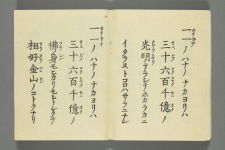 一一ノハナノナカヨリハ
三十六百千億ノ
光明テラシテホカラカニ
イタラヌトコロハサラニナシ
一一ノハナノナカヨリハ
三十六百千億ノ
佛身モヒカリモヒトシクテ
相好金山ノコトクナリ